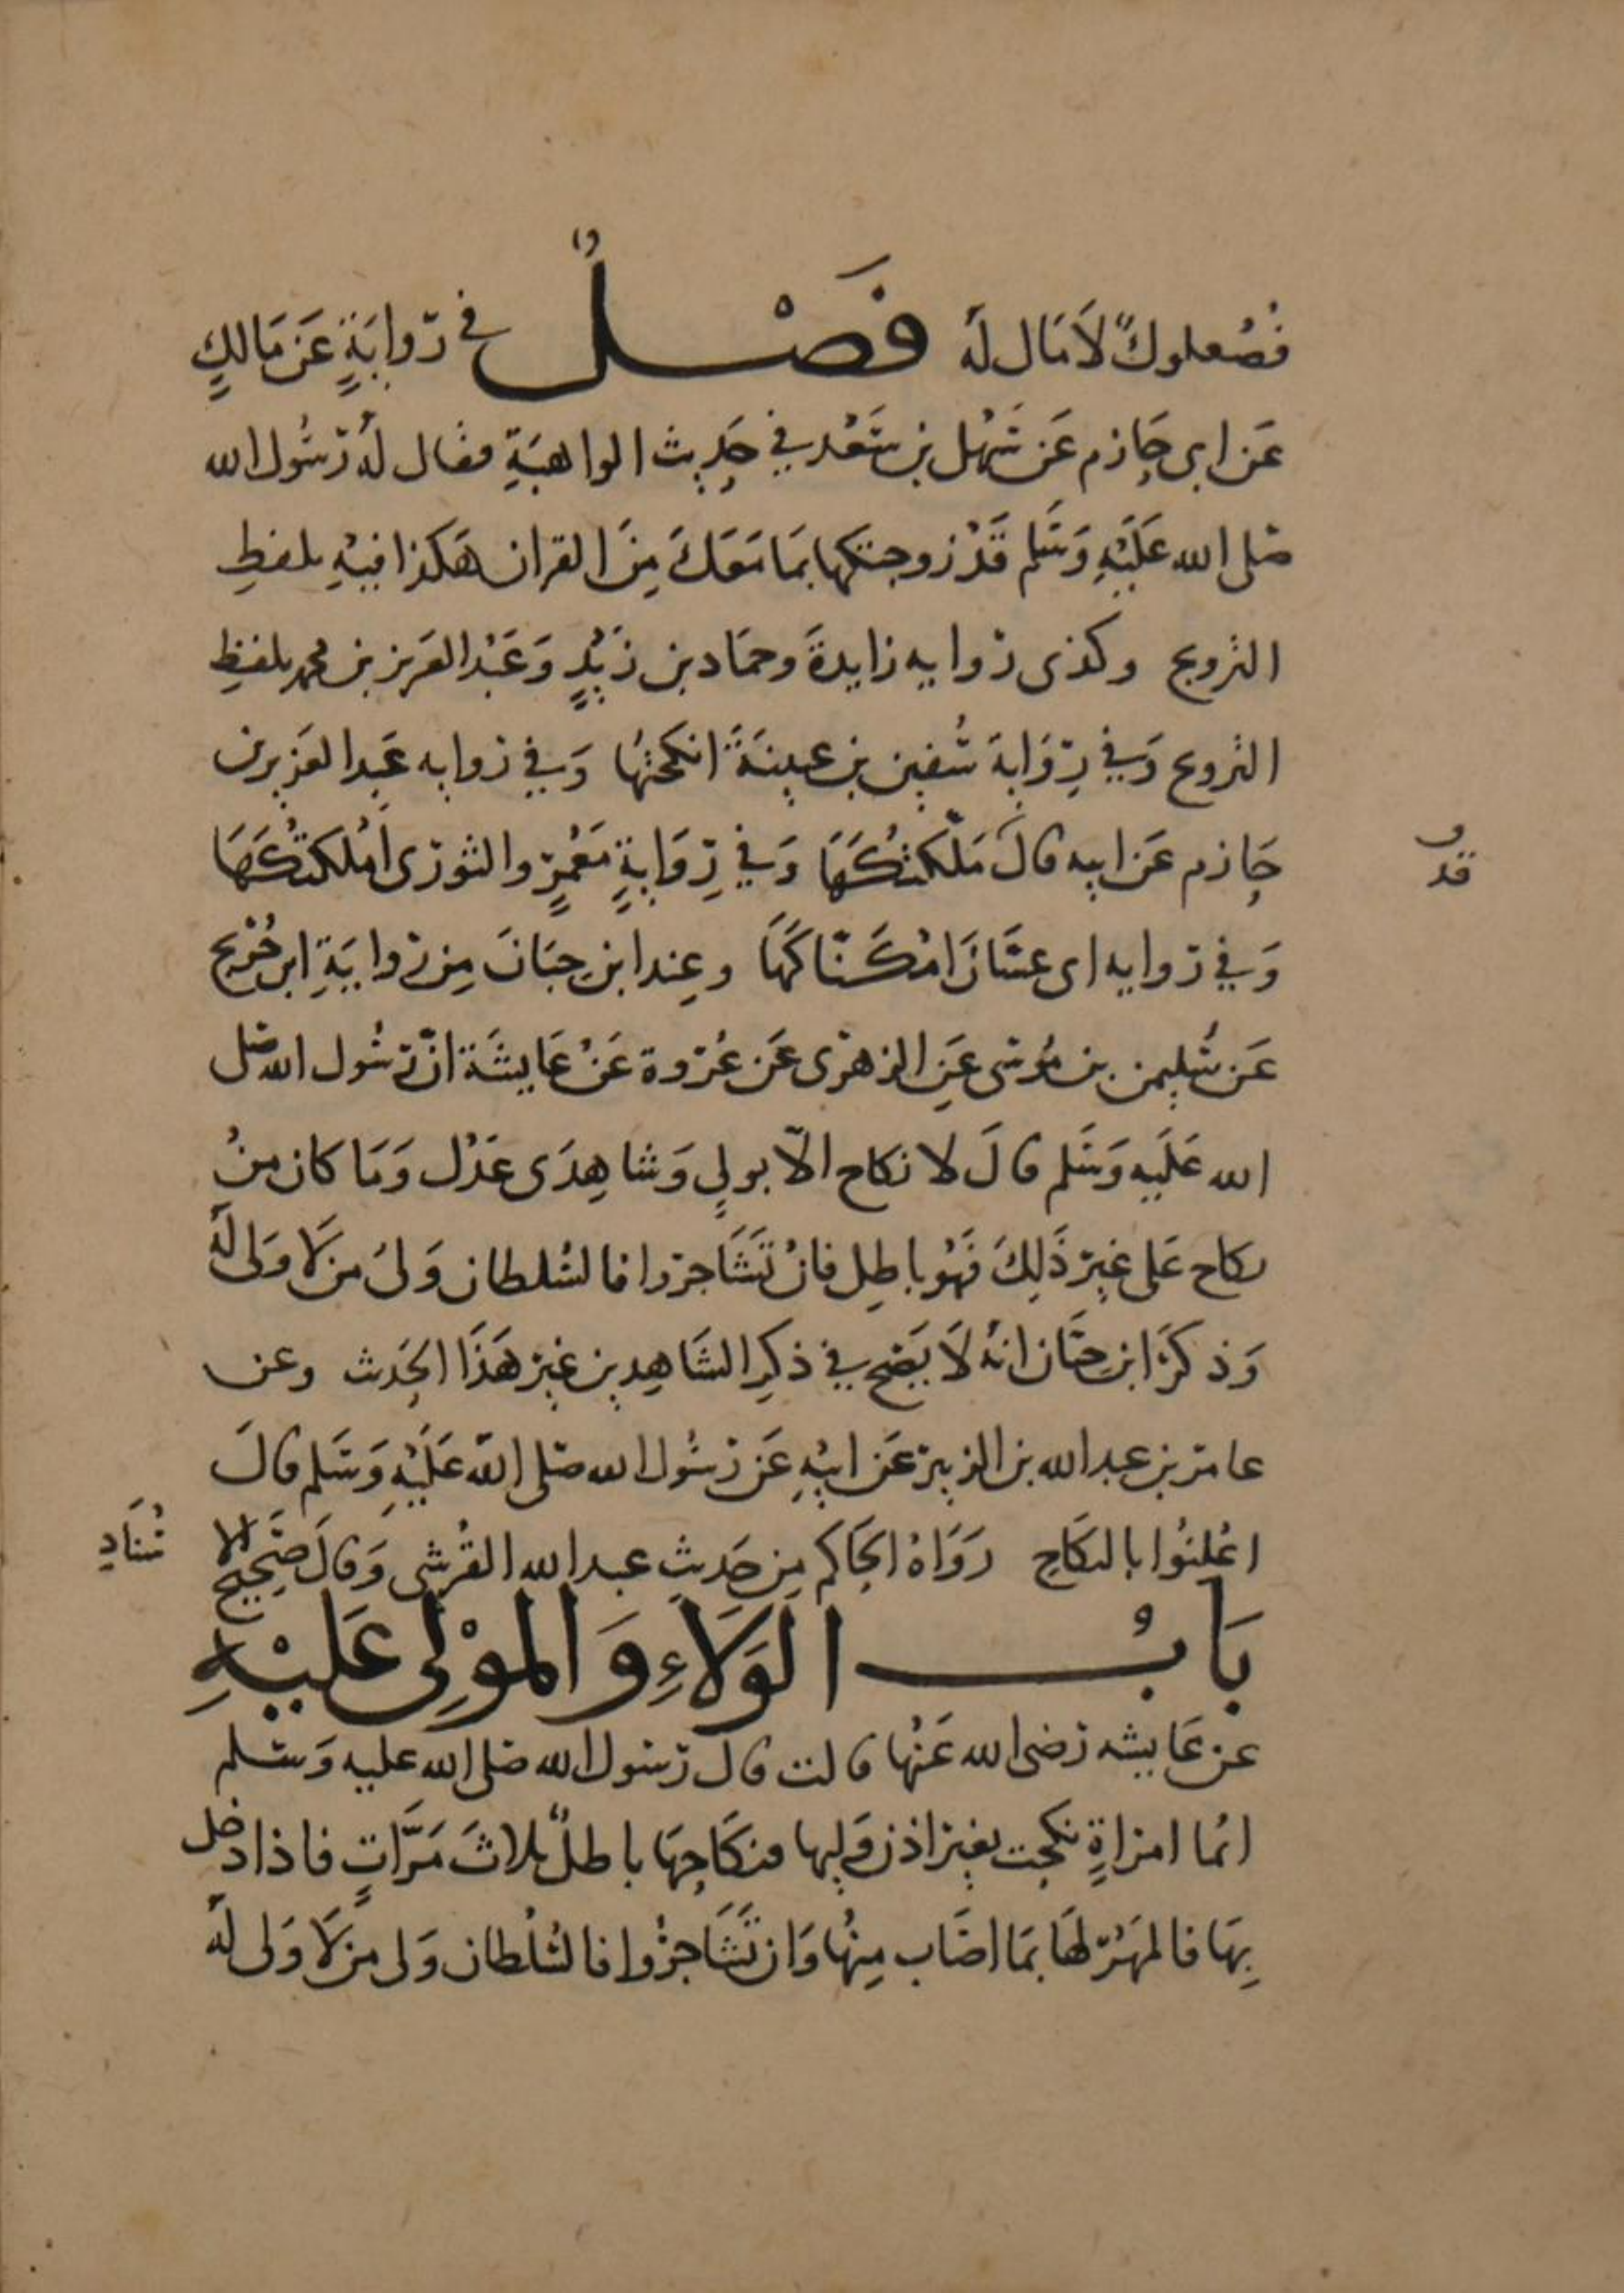 فصُعلوكٌ لَا مَال لَهُ فَصْلٌ في رِوايَةٍ عَن مَالكٍ
عَن ابى حَازم عَن سَهْل بن سَعْد في حَديث الواهبَةِ فقال لهُ رسُول الله
صلى الله عَلَيْهِ وَسَلم قَدْ زوجتكها بمَا مَعَكَ مِنَ القران هَكذا فيْهِ بلفظِ
التزويج وكذى روايه زايدةَ وحمَاد بن زَيْدٍ وَعَبْد العَزيز بن محمد بلفظِ
التزويج وَفي رِوَايَة سُفيٰن بن عيينَةَ انكحتُها وَفي روايه عَبد العَزيز بن
حَازم عَن ابيه قالَ مَلّكتُكَهَا وَفي رِوَايَةٍ مَعْمَرٍ والثورى امْلكتُكَهَا
وَفي روايه ابى غسَّانَ امْكَنّاكَهَا وعِند ابن حِبَانَ مِن روايَةِ ابن جُرْيج
عَن سُليمٰن بن مُوسَى عَنِ الزهرى عَن عُرْوة عَنْ عَايشَة انّ رسُول الله صَلى
الله عَلَيهِ وَسَلم قالَ لا نكاح الّا بوليٍ وَشاهِدَى عَدْل وَمَا كان منْ
نكاح عَلى غيرِ ذَلِكَ فَهُو باطِل فانْ تَشَاجَرُوا فالسُلطان وَلىُ مَن لَا وَلى لَهُ
وَذكرَ ابن حبَّان انهُ لَا يَصح في ذكرِ الشَاهِدين غير هَذَا الحَدِيث وعن
عامر بن عبد الله بن الزبير عَن ابيْهِ عَن رسُول الله صَلى اللهُ عَلَيْهِ وَسَلم قالَ
اعْلِنُوا بالنكَاحِ رَوَاهُ الحَاكم مِن حَديثِ عبد الله القُرشى وَقالَ صَحيحُ الا
سْنَادِ
بَابُ الوَلَاءِ وَالموْلِي عَليْهِ
عن عَايشه رضى الله عَنْها قالت قال رسُول الله صلى الله عليه وَسَلم
ايُما امراةٍ نكحت بغير اذن وَليها فنكَاحهَا باطلٌ ثلاثَ مَرَّاتٍ فاذا دخل
بِهَا فالمَهْر لهَا بمَا اصَاب مِنْهَا وَان تَشَاجرُوا فالسُلْطان وَلى مَن لَا وَلى لَهُ